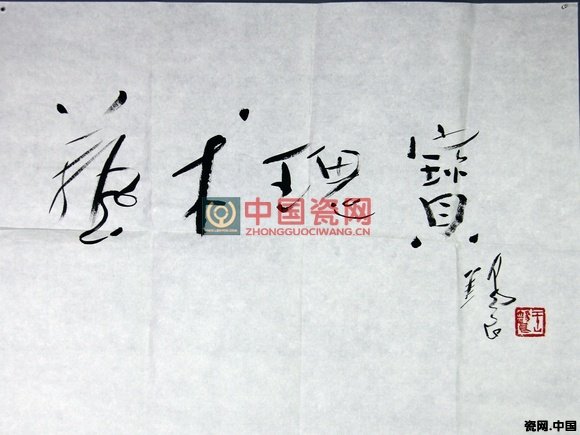 藝术瑰寶
中国瓷网
ZHONGGUOCIWANG.CN
瓷网.中国